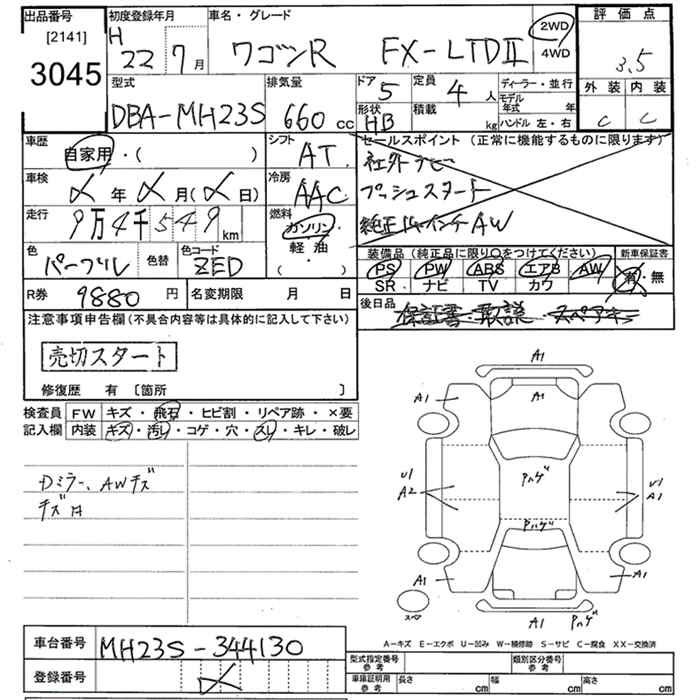 出品番号
[2141]
3045
初度登録年月
H 22 7月
車名・グレード
ワゴンR FX-LTDⅡ
2WD
4WD
評価点
3.5
外装 内装
C C
型式
DBA-MH23S
排気量
660 cc
ドア 5
定員 4 人
形状 HB
積載 kg
ディーラー・並行
モデル年式 年
ハンドル 左・右
車歴
自家用・( )
車検
年 月( 日)
走行
9万4千549 km
色
パープル
色替
色コード
ZED
シフト
AT
冷房
AAC
燃料
ガソリン
軽油
( ・ )
セールスポイント (正常に機能するものに限ります)
社外ナビ
プッシュスタート
純正14インチAW
装備品 (純正品に限り○をつけてください)
PS PW ABS エアB AW
SR ナビ TV カワ
新車保証書
有・無
R券 9880 円
名変期限 月 日
後日品
保証書・取説・スペアキー
注意事項申告欄(不具合内容等は具体的に記入して下さい)
売切スタート
修復歴 有 〔箇所 〕
検査員記入欄
FW キズ・飛石・ヒビ割・リペア跡・×要
内装 キズ・汚レ・コゲ・穴・スレ・キレ・破レ
Dミラー、AWキズ
キズ
A1
A1 A1 A1
Pハゲ
U1 U1
A2 A1
Pハゲ
A1 A1
スペア
A1 Pハゲ
A-キズ E-エクボ U-凹み W-補修跡 S-サビ C-腐食 XX-交換済
車台番号 MH23S-344130
登録番号
型式指定番号 参考
類別区分番号 参考
車庫証明用 参考
長さ cm
幅 cm
高さ cm